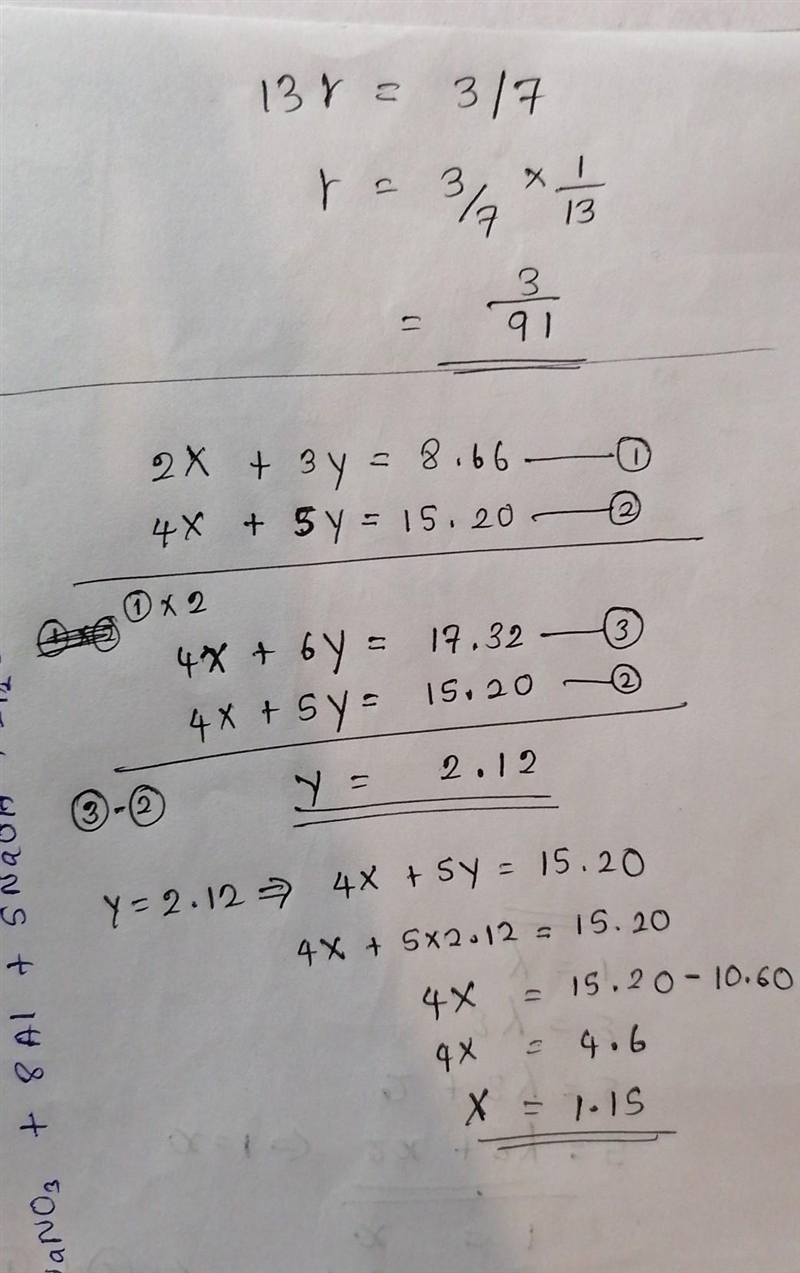 13r = 3/7
r = 3/7 × 1/13
= 3/91
2x + 3y = 8.66 —— ①
4x + 5y = 15.20 —— ②
① × 2
4x + 6y = 17.32 —— ③
4x + 5y = 15.20 —— ②
③ - ② y = 2.12
y = 2.12 ⇒ 4x + 5y = 15.20
4x + 5×2.12 = 15.20
4x = 15.20 - 10.60
4x = 4.6
x = 1.15
aNO₃ + 8Al + 5NaOH